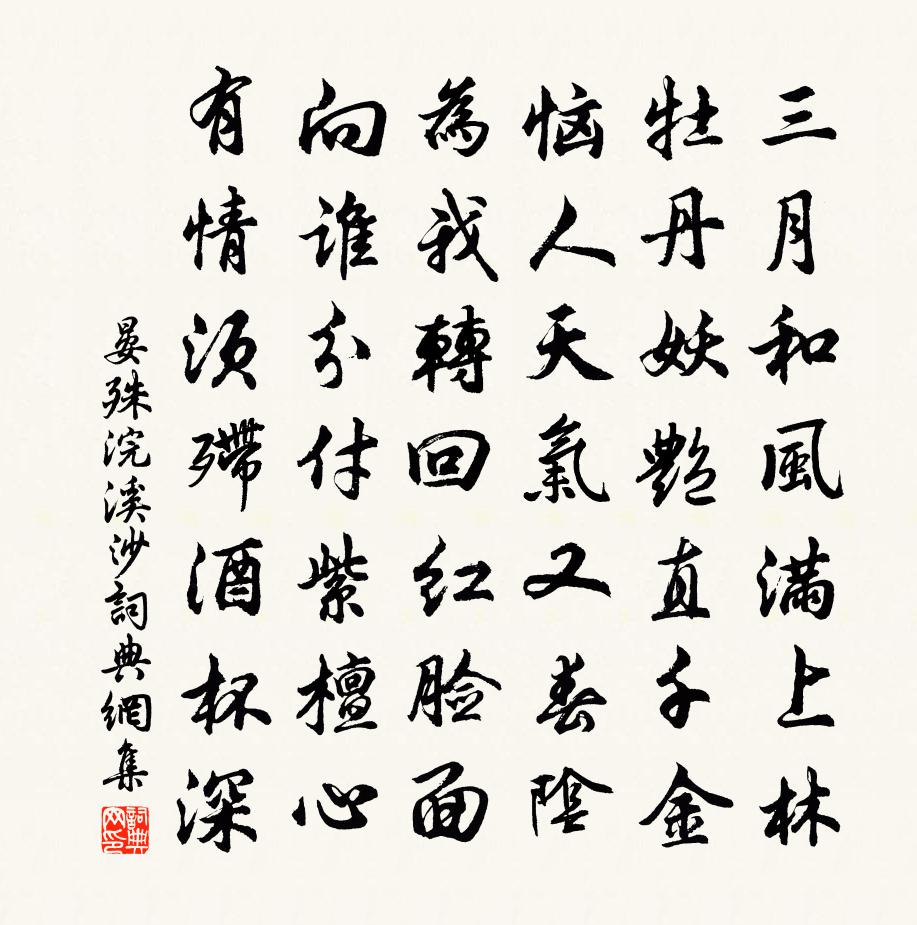 三月和風滿上林
牡丹妖艷直千金
恼人天氣又春陰
為我轉回红脸面
向誰分付紫檀心
有情须殢酒杯深
晏殊浣溪沙詞典網集
詞典网印